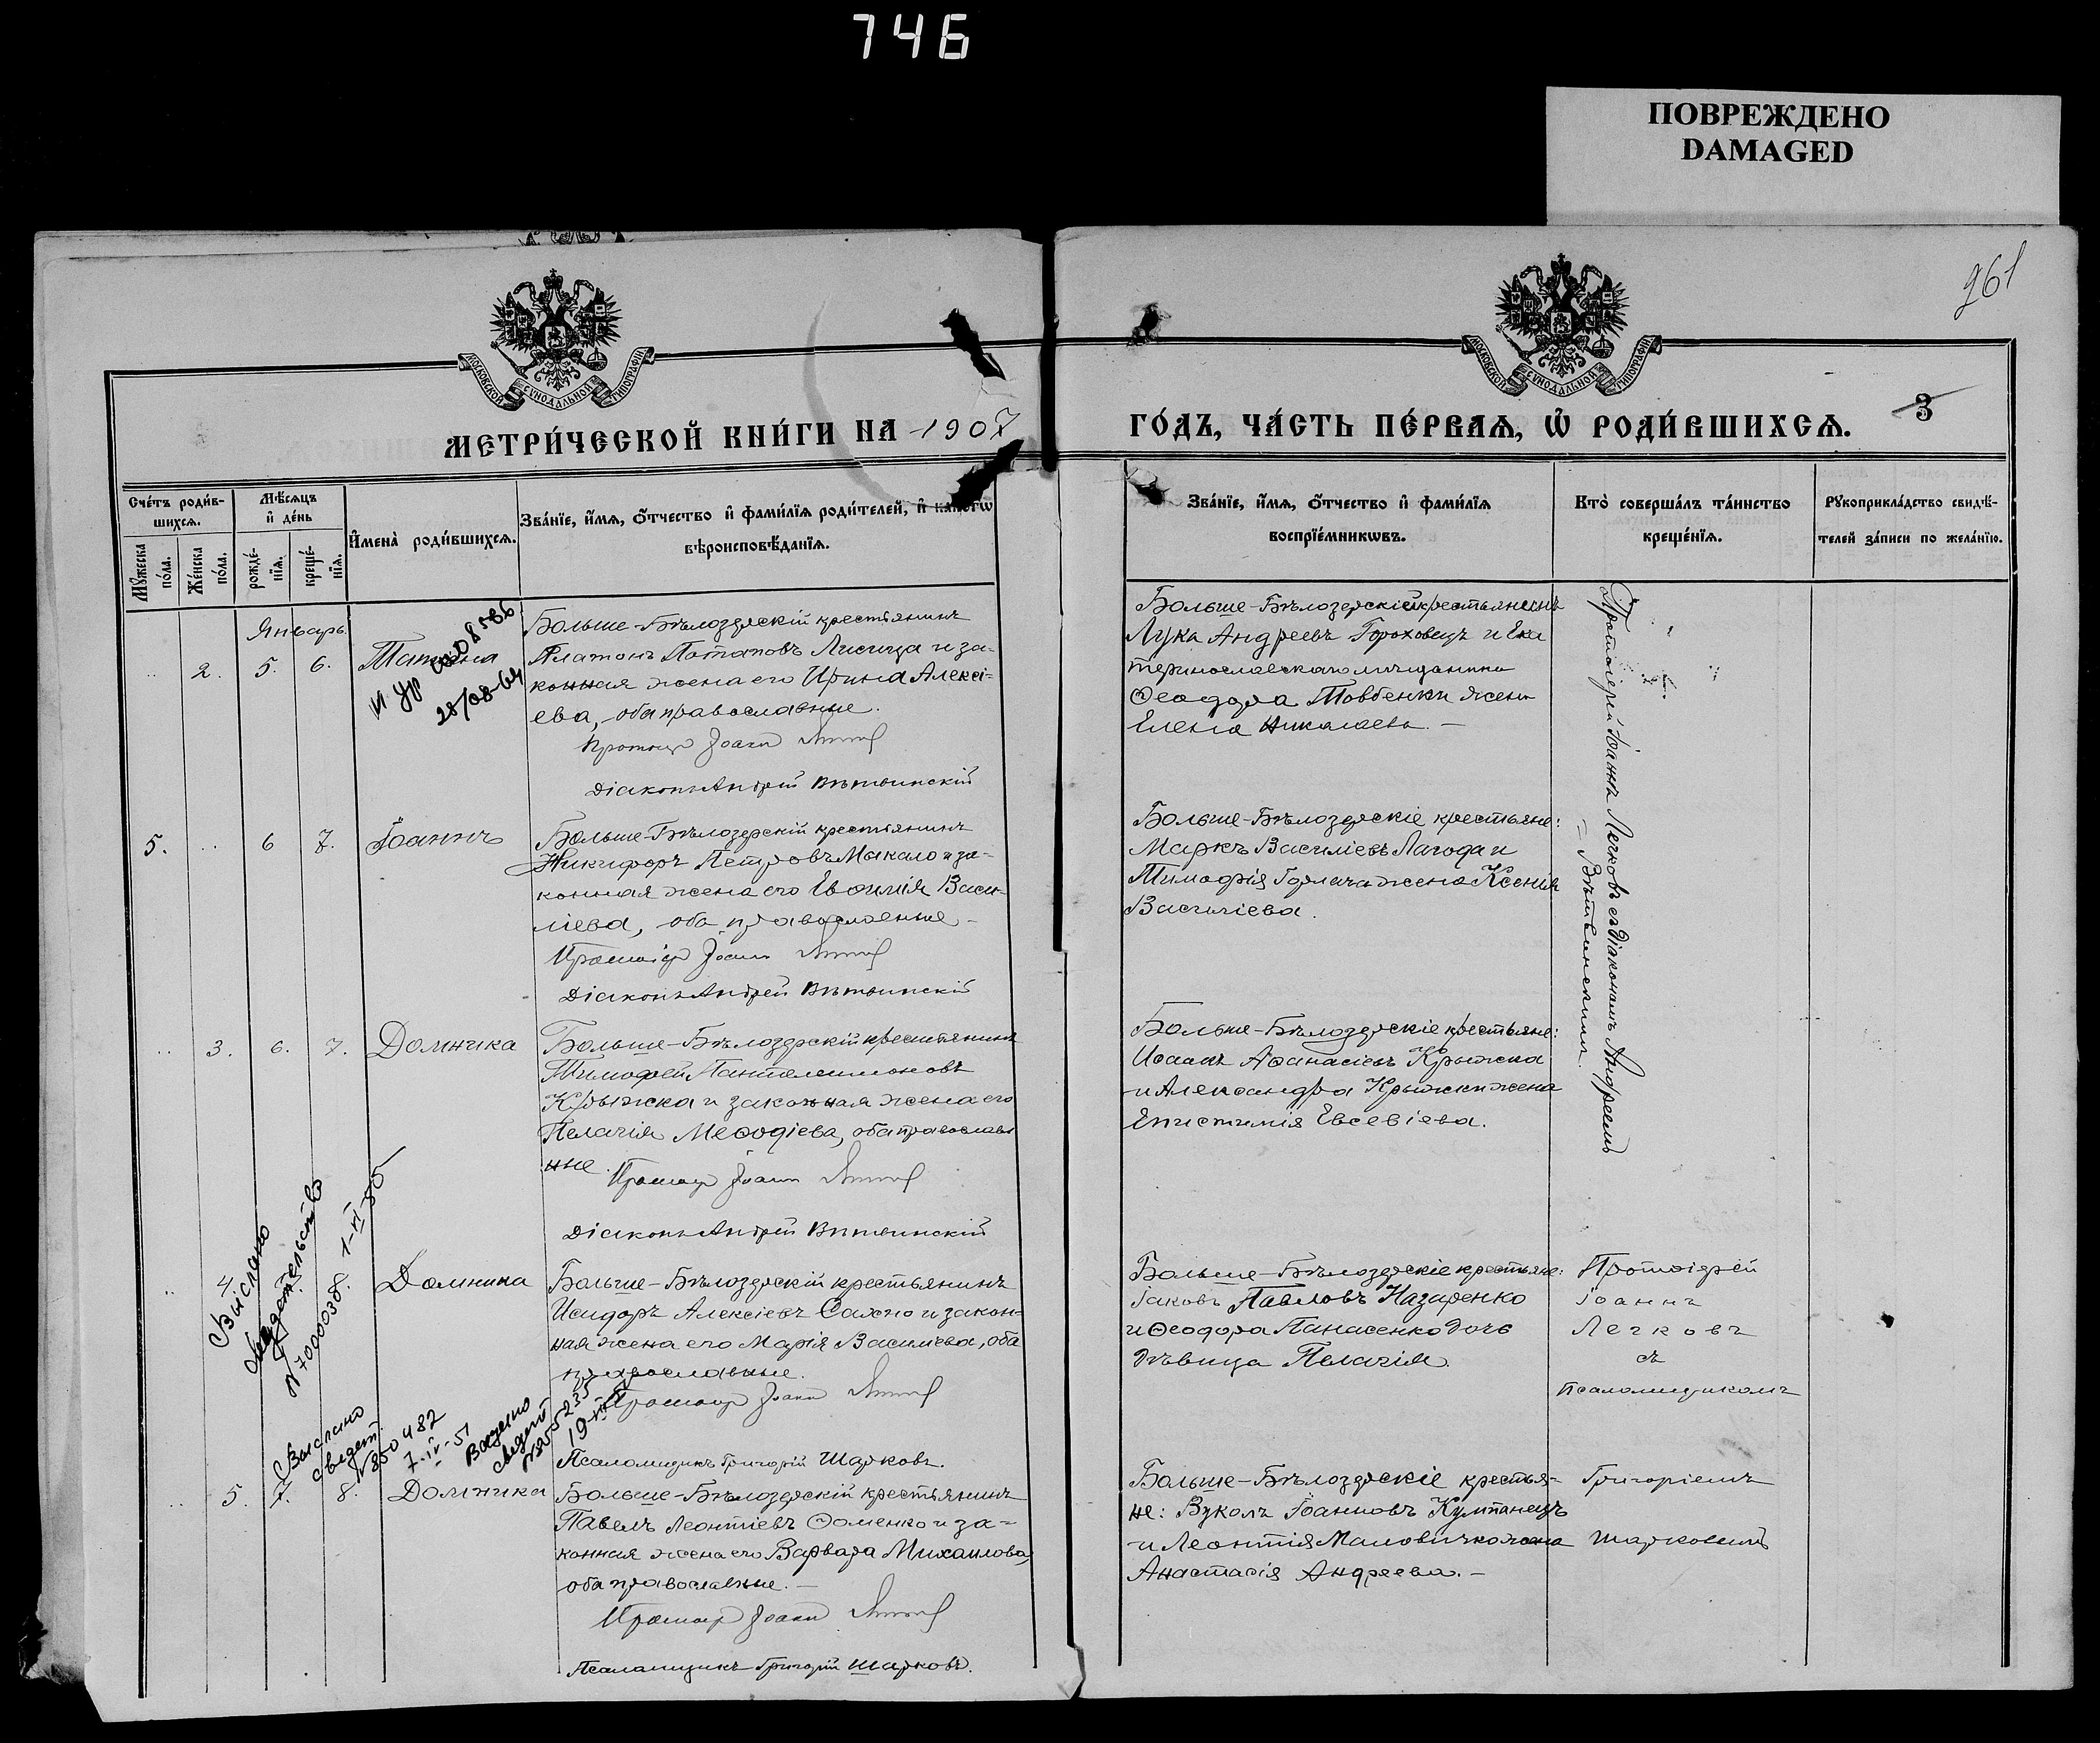 746
ПОВРЕЖДЕНО
DAMAGED
961
МОСКОВСКОЙ СѴНОДАЛЬНОЙ ТИПОГРАФІИ
МОСКОВСКОЙ СѴНОДАЛЬНОЙ ТИПОГРАФІИ
3
МЕТРИ́ЧЕСКОЙ КНИ́ГИ НА 1907
ГО́ДЪ, ЧА́СТЬ ПЕ́РВАѦ, Ѡ҆ РОДИ́ВШИХСѦ.
Сче́тъ роди́в-
шихсѧ.
Мꙋ́жеска по́ла.
Же́нска по́ла.
Мѣ́сѧцъ
и҆ де́нь
рожде́-
нїѧ.
креще́-
нїѧ.
И҆мена̀ роди́вшихсѧ.
Зва́нїе, и҆́мѧ, ѻ҆́тчество и҆ фами́лїѧ роди́телей, и҆ како́гѡ
вѣроисповѣ́данїѧ.
Зва́нїе, и҆́мѧ, ѻ҆́тчество и҆ фами́лїѧ
воспрїе́мникѡвъ.
Кто̀ соверша́лъ та́инство
креще́нїѧ.
Рꙋкоприкла́дство свидѣ́-
телей за́писи по жела́нїю.
Январь
2. 5. 6. Татіана
28/08-64
Больше-Бѣлозерскій крестьянинъ
Платонъ Потаповъ Лисица и за-
конная жена его Ирина Алексі-
ева, оба православные.
Іоаннъ
Діаконъ Андрей Вѣтвинскій
Больше-Бѣлозерскій крестьянинъ
Лука Андреевъ Гороховецъ и Ека
теринославскаго мѣщанина
Ѳеодора Товбенки жена
Елена Николаева. —
Протоіерей Іоаннъ Лечковъ съ діакономъ Андреемъ
Вѣтвинскимъ.
5. 6 7. Іоаннъ
Больше-Бѣлозерскій крестьянинъ
Никифоръ Петровъ Макало и за-
конная жена его Евѳимія Васи-
ліева, оба православные —
Протоіер Іоанн
Діаконъ Андрей Вѣтвинскій
Больше-Бѣлозерскіе крестьяне:
Маркъ Василіевъ Лагода и
Тимофія Горлача жена Ксенія
Василіева.
3. 6. 7. Домника
Больше-Бѣлозерскій крестьянинъ
Тимофей Пантелеимоновъ
Крыжка и законная жена его
Пелагія Меѳодіева, оба православ
ные.
Протоиер Іоанн
Діаконъ Андрей Вѣтвинскій
Больше-Бѣлозерскіе крестьяне:
Исаакъ Аѳанасіевъ Крыжка
и Александра Крыжки жена
Епистимія Евсевіева.
4. 8. Домника
Выслано
свидетельство
№7000038 1-VI-85
Больше-Бѣлозерскій крестьянинъ
Исидоръ Алексіевъ Сахно и закон-
ная жена его Марія Василіева, оба
православные.
Протоиер Іоанн
Псаломщикъ Григорій Шарковъ.
Больше-Бѣлозерскіе крестьяне:
Іаковъ Павловъ Назаренко
и Ѳеодора Панасенко дочь
дѣвица Пелагія.
Протоіерей
Іоаннъ
Лечковъ
съ
псаломщикомъ
Григоріемъ
Шарковымъ
Выслано
свидет.
№850482
7-IV-51
Выдано
свидет
5. 7. 8. Домника
Больше-Бѣлозерскій крестьянинъ
Павелъ Леонтіевъ Ѳоменко и за-
конная жена его Варвара Михаилова,
оба православные. —
Протоиер Іоанн
Псаломщикъ Григорій Шарковъ.
Больше-Бѣлозерскіе крестья-
не: Вуколъ Іоанновъ Кумпанецъ
и Леонтія Маловичко жена
Анастасія Андреева. —